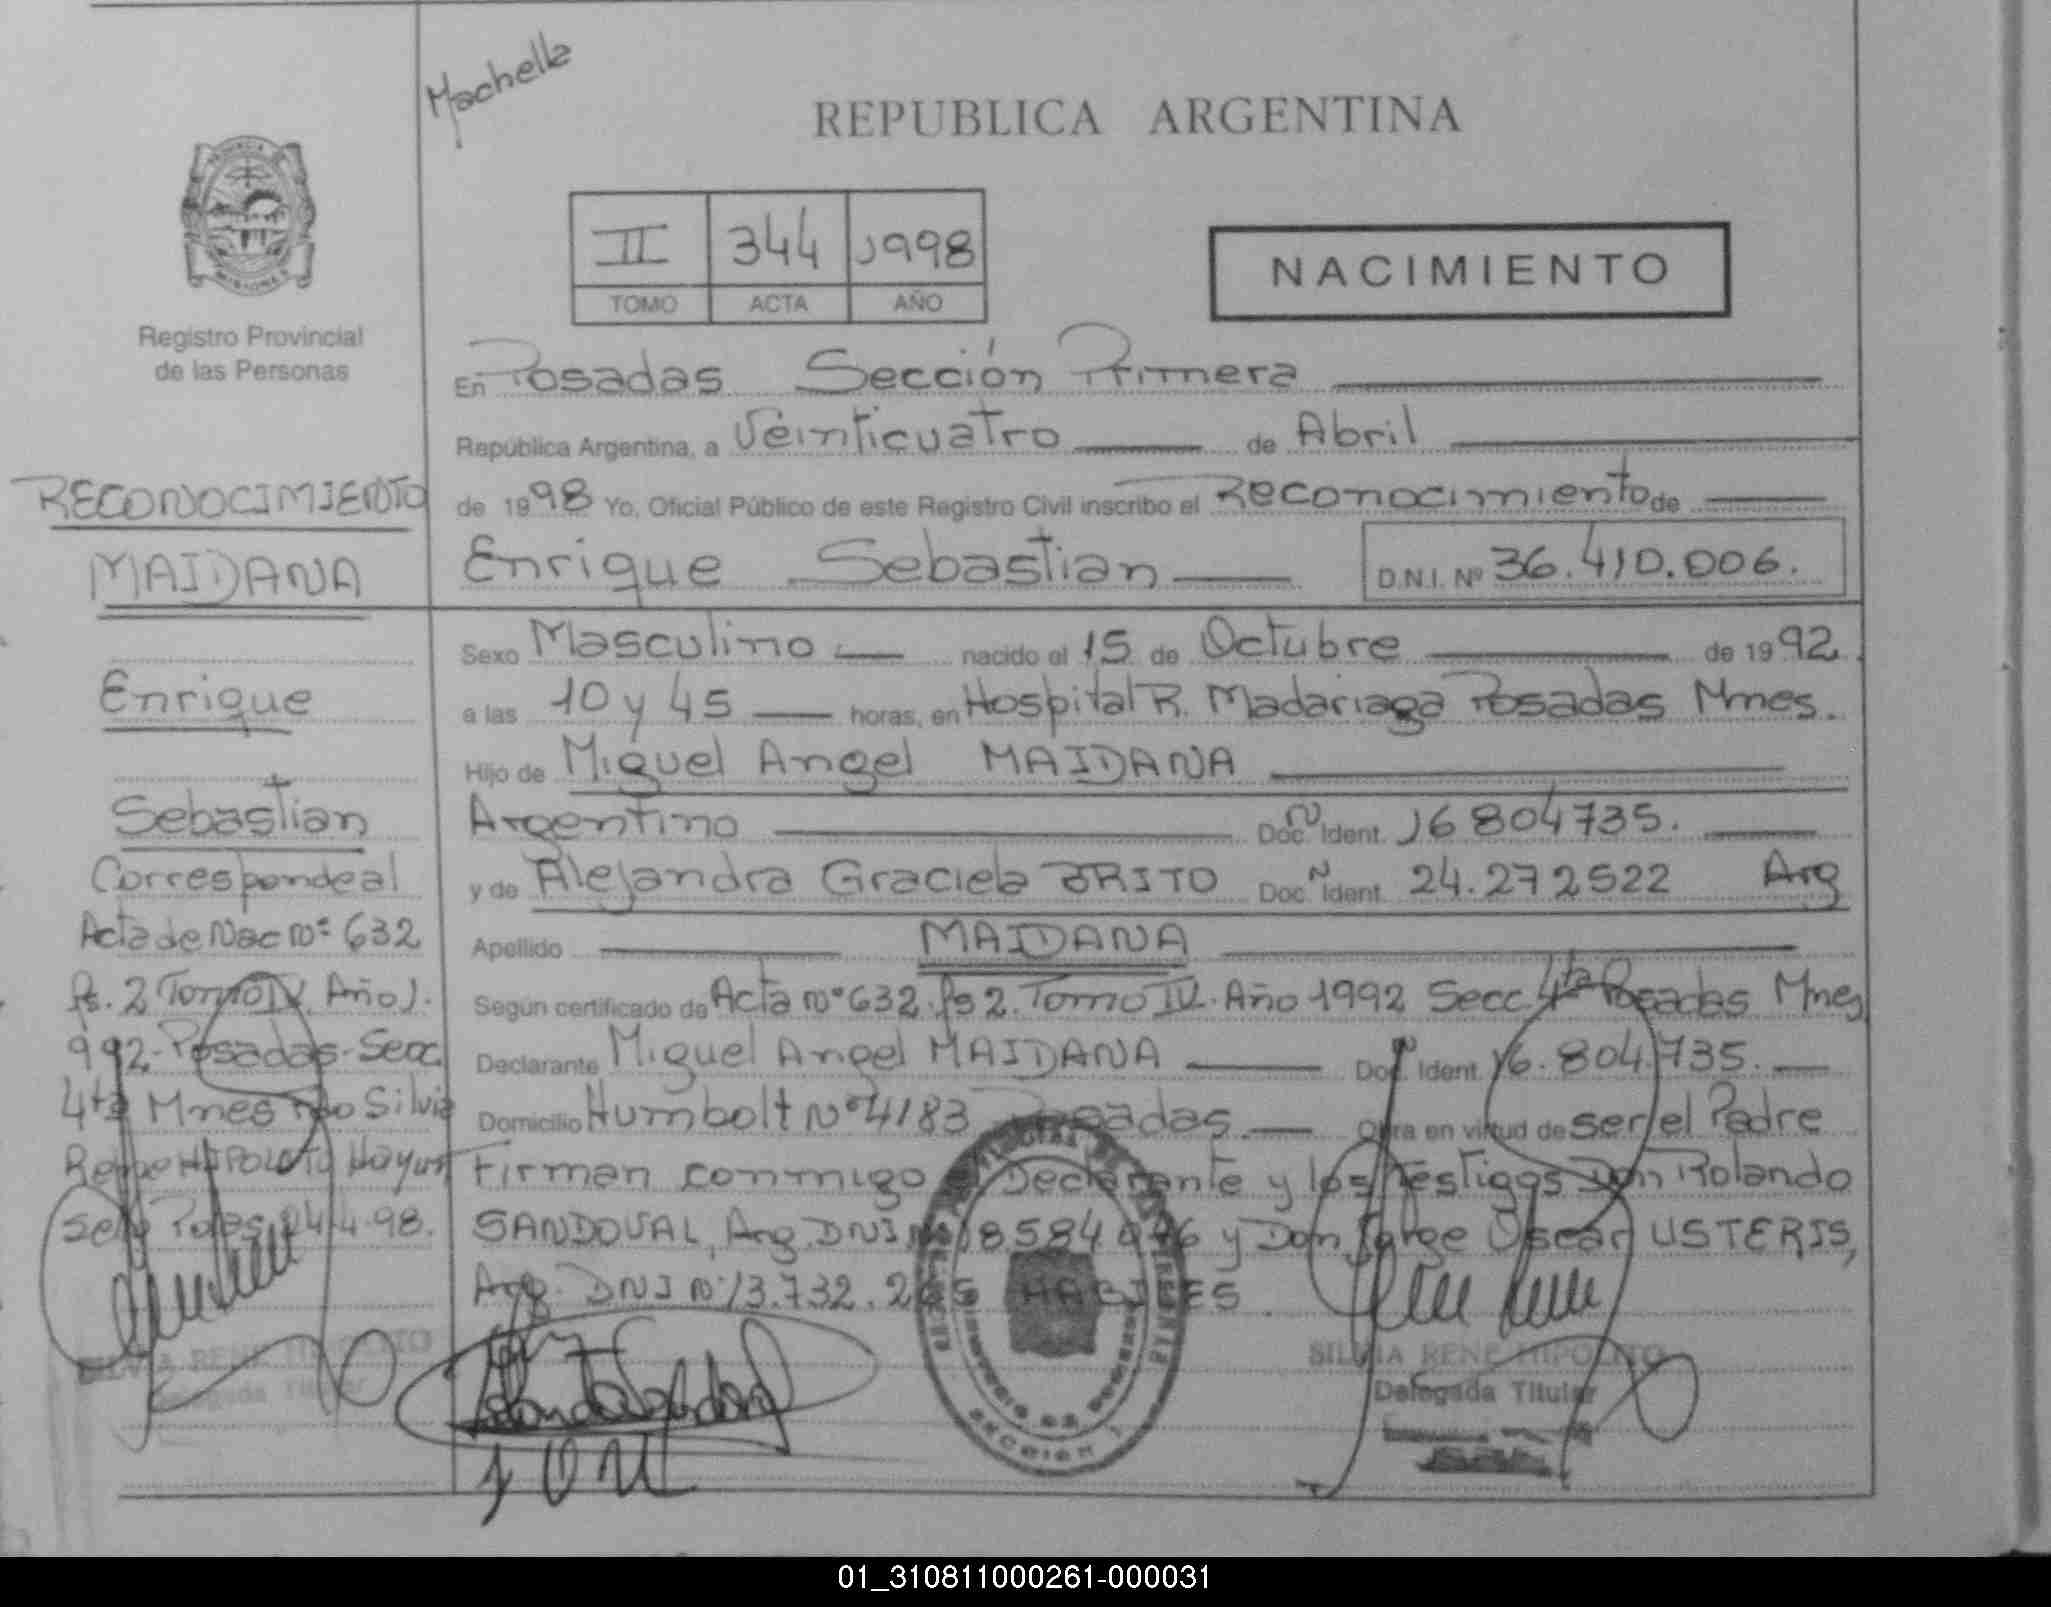 Machella
REPUBLICA ARGENTINA
II 344 1998
TOMO ACTA AÑO
NACIMIENTO
Registro Provincial
de las Personas
RECONOCIMIENTO
MAIDANA
Enrique
Sebastian
Corresponde al
Acta de Nac Nº 632
fs. 2 Tomo IV. Año 1.
992-Posadas-Secc
4ta Mnes Silvia
Rene HIPOLITO Hay un
Sello Pdas 24-4-98.
SILVIA RENE HIPOLITO
Delegada Titular
En Posadas Sección Primera
República Argentina, a Veinticuatro de Abril
de 1998 Yo, Oficial Público de este Registro Civil inscribo el Reconocimiento de
Enrique Sebastian D.N.I. Nº 36.410.006.
Sexo Masculino nacido el 15 de Octubre de 1992.
a las 10 y 45 horas, en Hospital R. Madariaga Posadas Mnes.
Hijo de Miguel Angel MAIDANA
Argentino Doc. N Ident. 16804735.
y de Alejandra Graciela BRITO Doc. N Ident. 24.272522 Arg
Apellido MAIDANA
Según certificado de Acta Nº 632. fs 2. Tomo IV. Año 1992 Secc. 4ta Posadas Mnes
Declarante Miguel Angel MAIDANA Doc. Ident. 16.804.735.
Domicilio Humbolt Nº 4183 Posadas. Obra en virtud de ser el Padre
Firman conmigo Declarante y los testigos Don Rolando
SANDOVAL, Arg. DNI y Don Jorge Oscar USTERIS,
Arg. DNI Nº 13.732. HABILES.
SILVIA RENE HIPOLITO
Delegada Titular
SECCION 1
01_310811000261-000031